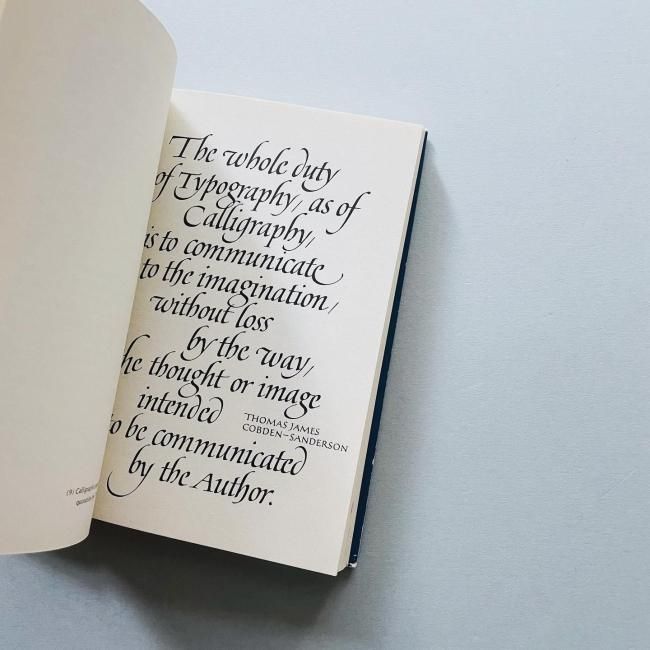 The whole duty
of Typography, as of
Calligraphy,
is to communicate
to the imagination,
without loss
by the way,
the thought or image
intended
THOMAS JAMES
COBDEN–SANDERSON
to be communicated
by the Author.
(9) Calligraphic